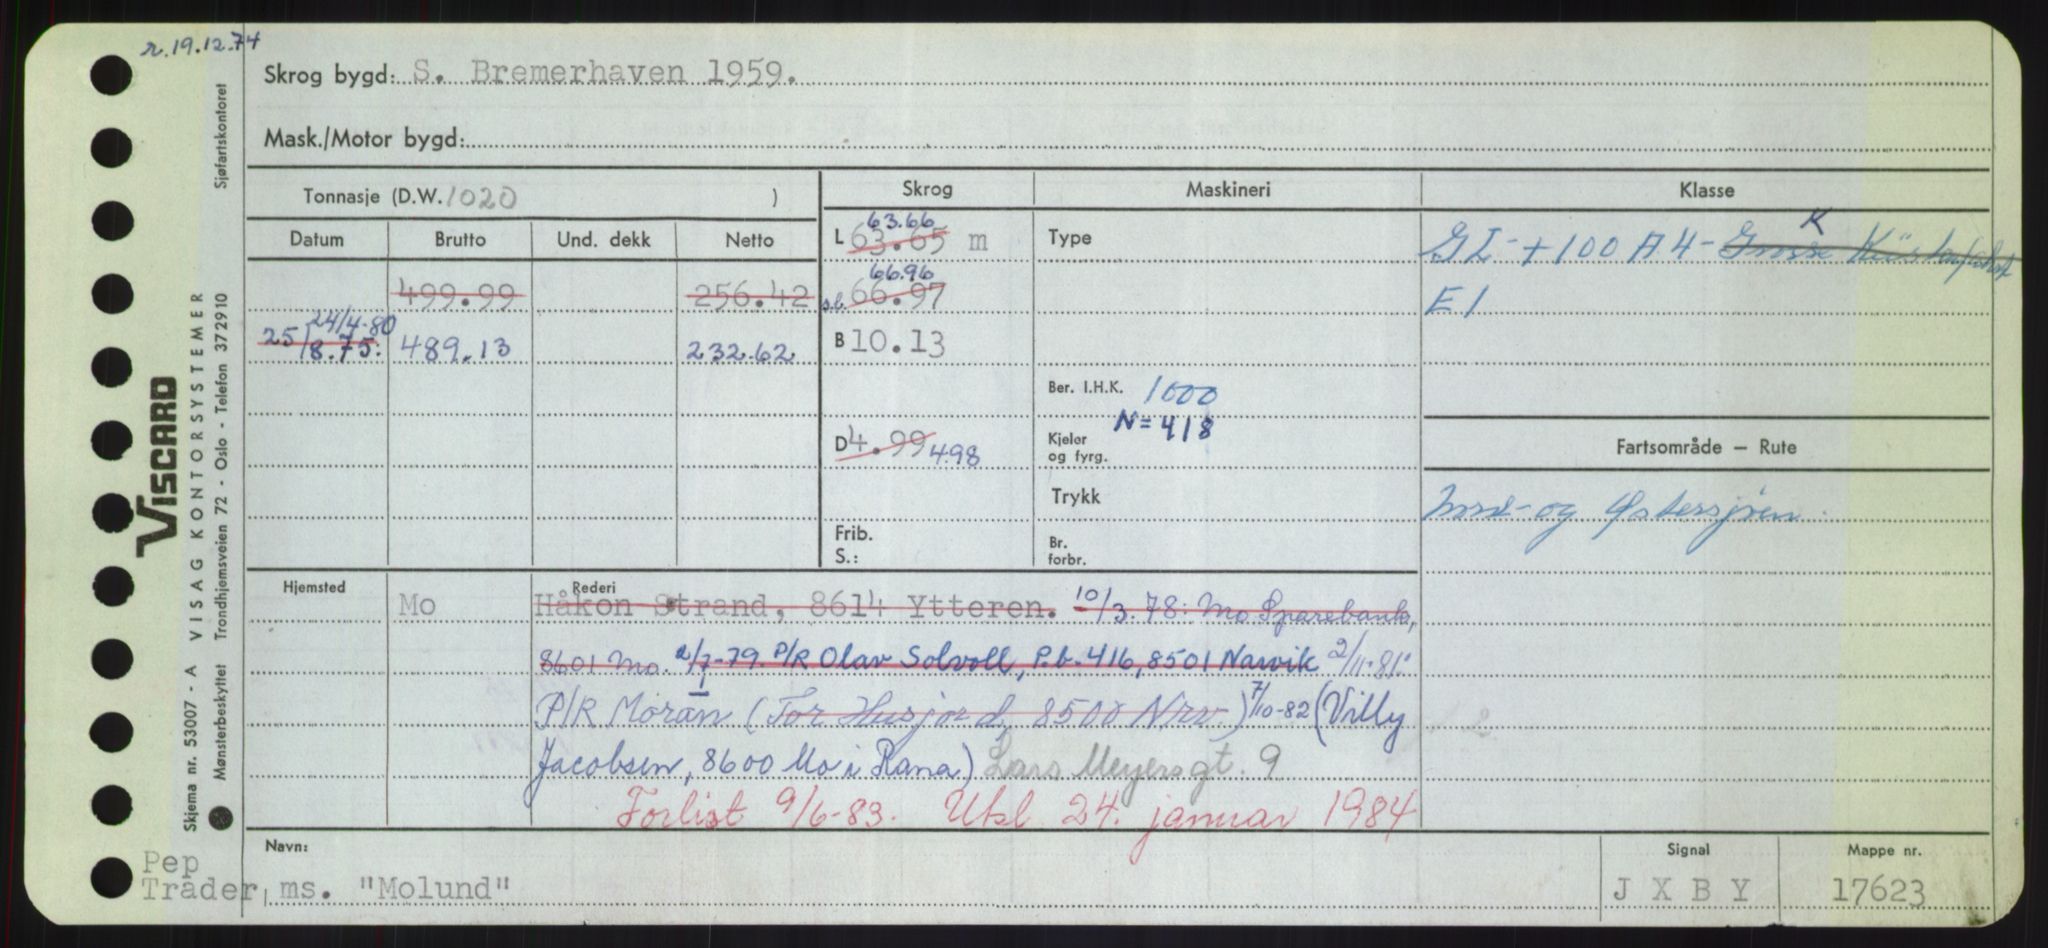 r. 19.12.74
Skrog bygd: S. Bremerhaven 1959.
Mask./Motor bygd:
Tonnasje (D.W. 1020 )
Skrog
Maskineri
Klasse
Datum Brutto Und. dekk Netto
63.66
L 63.65 m
Type
K
GL + 100 A 4 - Grosse Küstenfahrt
499.99 256.42
66.96
s.b. 66.97
E 1
24/4-80
25/8.75. 489.13 232.62
B 10.13
Ber. I.H.K. 1000
N = 418
D 4.99 4.98
Kjeler
og fyrg.
Fartsområde – Rute
Trykk
Nord- og Østersjøen.
Frib.
S.:
Br.
forbr.
Hjemsted
Mo
Rederi
Håkon Strand, 8614 Ytteren. 10/3.78: Mo Sparebank,
8601 Mo. 2/7-79. P/R Olav Solvoll, P.b. 416, 8501 Narvik 2/11-81:
P/R Moran (Tor Husjord, 8500 Nrv.) 7/10-82 (Villy
Jacobsen, 8600 Mo i Rana) Lars Meyersgt. 9
Forlist 9/6-83. Utsl 24. januar 1984
Navn:
Signal
Mappe nr.
Pep
Trader, ms. "Molund"
J X B Y
17623
VISCARD
Skjema nr. 53007 - A VISAG KONTORSYSTEMER
Mønsterbeskyttet Trondhjemsveien 72 - Oslo - Telefon 372910 Sjøfartskontoret